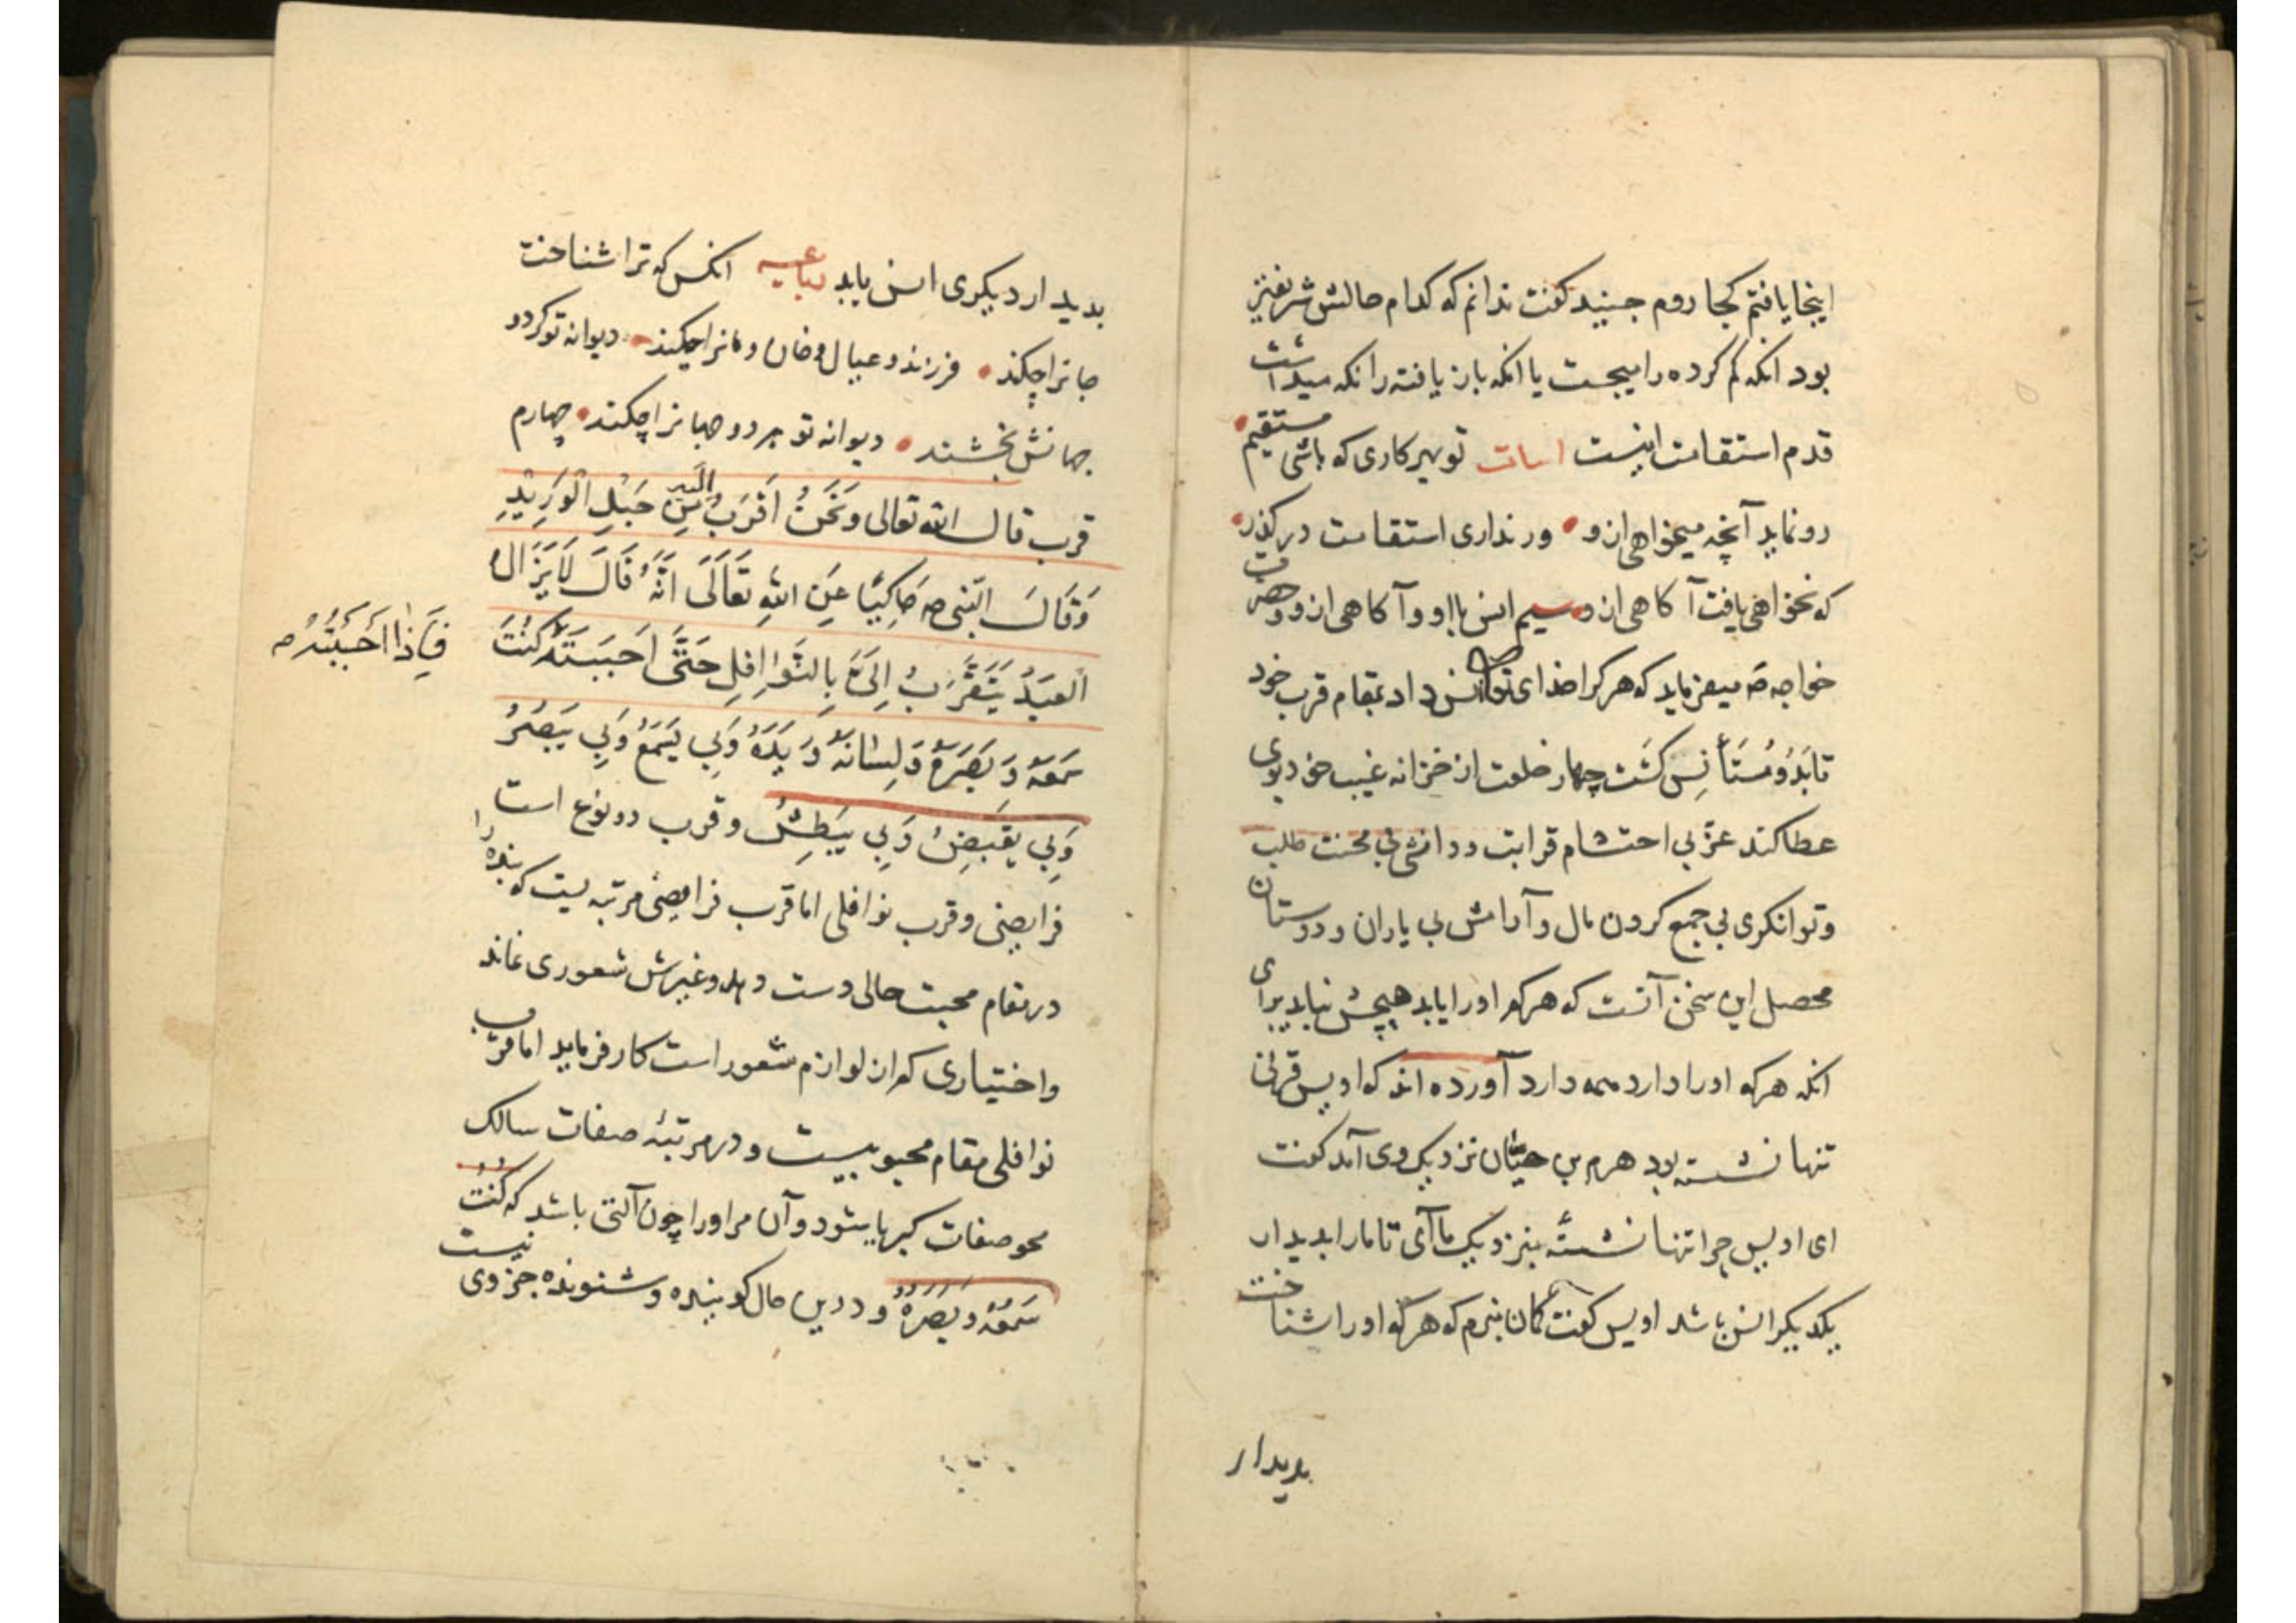 اینجا یافتم کجا روم جنید کفت ندانم که کدام حالش شریفتر
بود انکه کم کرده را میجست یا انکه باز یافته را نکه میداشت
قدم استقامت اینست ابیات تو بهر کاری که باشی مستقیم
رو نماید آنچه میخواهی ازو ور نداری استقامت در کذر
که نخواهی یافت آکاهی ازو سیم انس با او و آکاهی ازو و حضرت
خواجه صم میفرماید که هر کرا خدای تعالی انس داد بمقام قرب خود
تا بدو مستأنس کشت چهار خلعت از خزانه غیب خود بوی
عطا کند عزّ بی احتشام قرابت و دانش بی محنت طلب
و توانکری بی جمع کردن مال و آرامش بی یاران و دوستان
محصل این سخن آنست که هرکه او را یابد هیچش نباید برای
انکه هرکه او را دارد همه دارد آورده اند که اویس قرنی
تنها نشسته بود هرم بن حیّان نزدیک وی آمد کفت
ای اویس چرا تنها نشستهٔ بنزدیک ما آی تا ما را بدیدار
یکدیکر انس باشد اویس کفت کمان نبرم که هرکه او را شناخت
بدیدار
بدیدار دیکری انس یابد رباعیه انکس که ترا شناخت
جانرا چکند فرزند و عیال و خان و مانرا چکند دیوانه تو کردد
جهانش بخشند دیوانه تو هر دو جهانرا چکند چهارم
قرب قال الله تعالی وَنَحْنُ اَقْرَبُ اِلَیْهِ مِنْ حَبْلِ الْوَرِیْدِ
وَقَالَ النّبی صم حَاکِیًا عَنِ اللهِ تَعَالَی اَنَّهُ قَالَ لَایَزَالُ
الْعَبْدُ یَتَقَرَّبُ اِلَیَّ بِالنَّوَافِلِ حَتَّی اَحْبَبْتَهُ کُنْتُ
فَاِذَا اَحْبَبْتُهُ صم
سَمْعَهُ وَ بَصَرَهُ وَ لِسَانَهُ وَ یَدَهُ وَبِی یَسْمَعُ وَبِی یَبْصُرُ
وَبِی یَقْبَضُ وَبِی یَبْطِشُ و قرب دو نوع است
فرایضی و قرب نوافلی اما قرب فرایضی مرتبه یست که بنده را
در مقام محبت حالی دست دهد و غیرش شعوری نماند
واختیاری که از لوازم شعور است کار فرماید اما قرب
نوافلی مقام محبوبیست و در مرتبهٔ صفات سالک
محو صفات کبریا یشود و آن مر او را چون آلتی باشد که کُنْتُ
سَمْعَهُ وَ بَصَرَهُ و درین حال کوینده و شنونده جز وی نیست